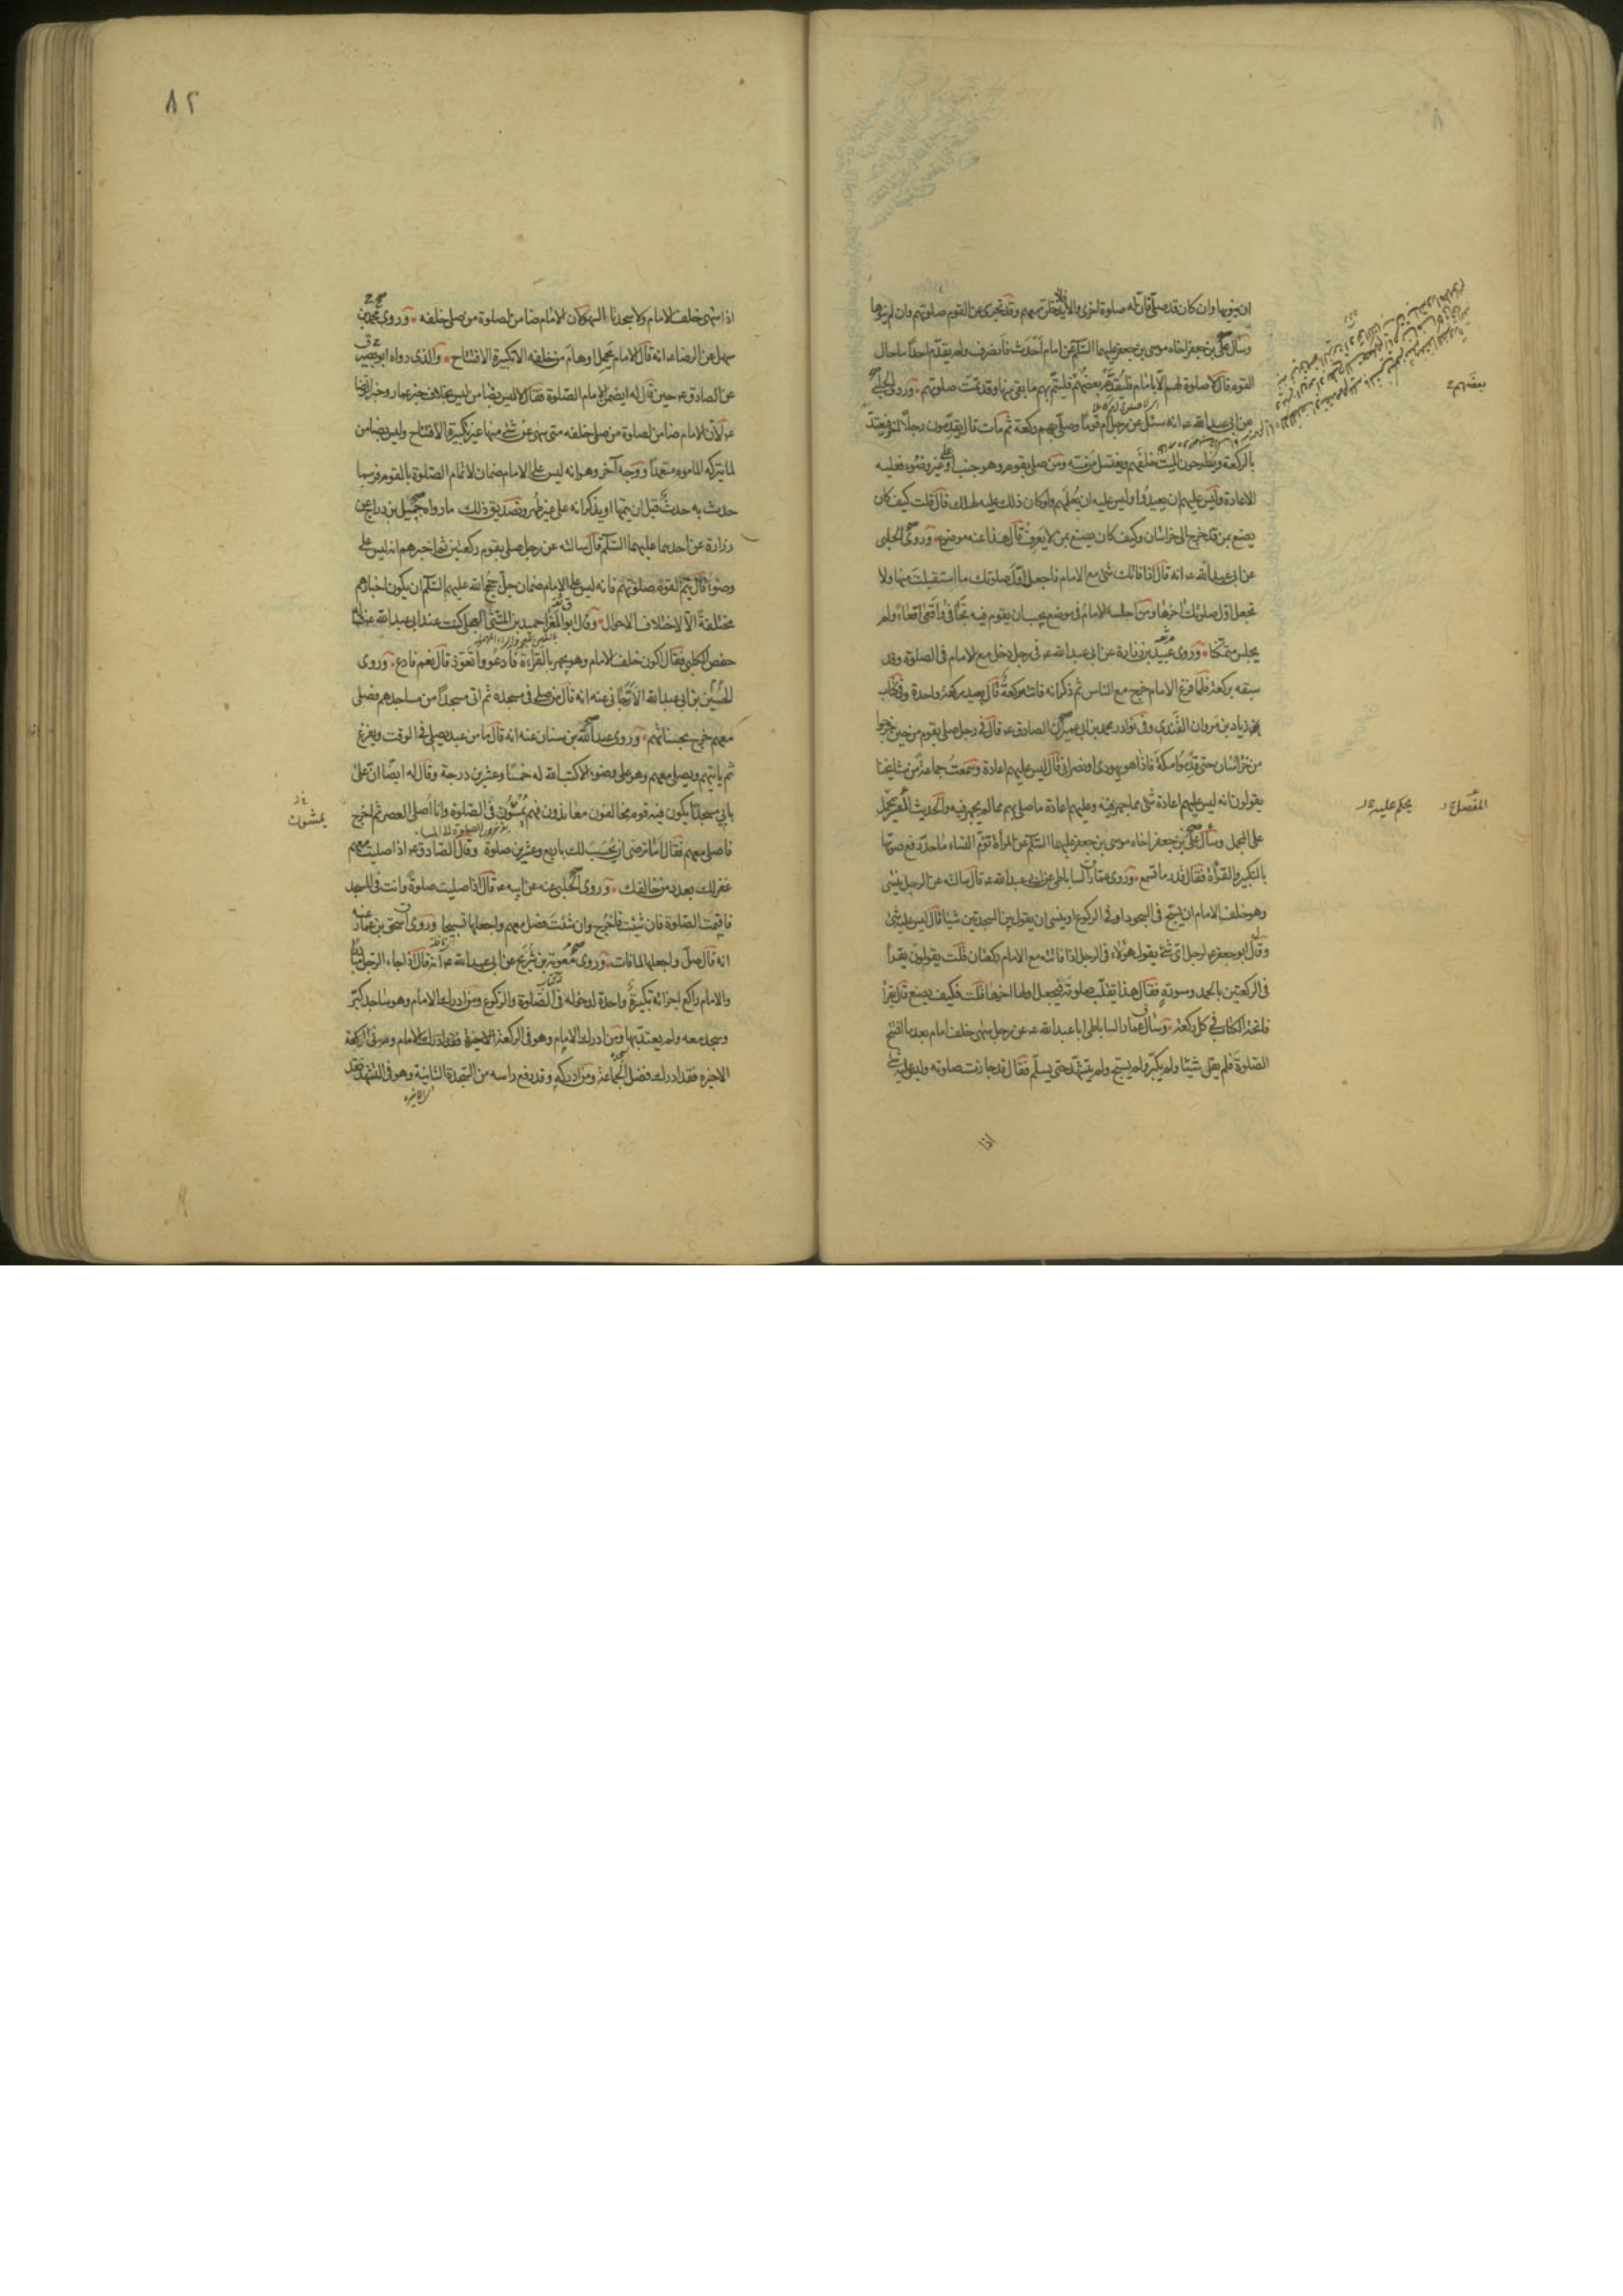 ان ينويها وان كان قد صلى فان له صلوة اخرى والا فلا يدخل معهم وقد تجزى عن القوم صلوتهم وان لم ينوها
وسأل على بن جعفر اخاه موسى بن جعفر عليهما السلم عن امام احدث فانصرف ولم يقدم احدا ما حال
القوم قال لا صلوة لهم الا بامام فليقدم بعضهم فليتم بهم ما بقى منها وقد تمت صلوتهم وروى الحلبى
عن ابى عبد الله ع انه سئل عن رجل ام قوما وصلى بهم ركعة ثم مات قال يقدمون رجلا اخر فيعتد
بالركعة ويطرحون الميت خلفهم ويغتسل من مسه ومن صلى بقوم وهو جنب او على غير وضوء فعليه
الاعادة وليس عليهم ان يعيدوا وليس عليه ان يعلمهم ولو كان ذلك عليه لهلك قال قلت كيف كان
يصنع بمن قد خرج الى خراسان وكيف كان يصنع بمن لا يعرف قال هذا عنه موضوع وروى الحلبى
عن ابى عبد الله ع انه قال اذا فاتك شئ مع الامام فاجعل اول صلوتك ما استقبلت منها ولا
تجعل اول صلوتك اخرها ومن اجلسه الامام فى موضع يجب ان يقوم فيه تجافى واقعى اقعاء ولم
يجلس متمكنا وروى عبيد بن زرارة عن ابى عبد الله ع فى رجل دخل مع الامام فى الصلوة وقد
سبقه بركعة فلما فرغ الامام خرج مع الناس ثم ذكر انه فاتته ركعة قال يعيد ركعة واحدة وفى كتاب
زياد بن مروان القندى وفى نوادر محمد بن ابى عمير ان الصادق ع قال فى رجل صلى بقوم من حين خرجوا
من خراسان حتى قدموا مكة فاذا هو يهودى او نصرانى قال ليس عليهم اعادة وسمعت جماعة من مشايخنا
يقولون انه ليس عليهم اعادة شئ مما جهر فيه وعليهم اعادة ما صلى بهم مما لم يجهر فيه والحديث المفسر يحمل
على المجمل وسأل على بن جعفر اخاه موسى بن جعفر عليهما السلم عن المرأة تؤم النساء ما حد رفع صوتها
بالتكبير والقرأة فقال قدر ما تسمع وروى عمار الساباطى عن ابى عبد الله ع قال سالته عن الرجل ينسى
وهو خلف الامام ان يسبح فى السجود او فى الركوع او ينسى ان يقول بين السجدتين شيئا قال ليس عليه شئ
وقال ابو جعفر ع لرجل اى شئ يقول هؤلاء فى الرجل اذا فاتته مع الامام ركعتان قلت يقولون يقرأ
فى الركعتين بالحمد وسورة فقال هذا يقلب صلوته فيجعل اولها اخرها قلت فكيف يصنع قال يقرأ
فاتحة الكتاب فى كل ركعة وسأل عمار الساباطى ابا عبد الله ع عن رجل سهى خلف امام بعد ما افتتح
الصلوة فلم يقل شيئا ولم يكبر ولم يسبح ولم يتشهد حتى يسلم فقال قد جازت صلوته وليس عليه شئ
اذا
بعضهم
المفصل
يحكم عليه
٨٢
اذا سهى خلف الامام ولا سجدتا السهو لان الامام ضامن لصلوة من صلى خلفه وروى محمد بن
سهل عن الرضا ع انه قال الامام يحمل اوهام من خلفه الا تكبيرة الافتتاح والذى رواه ابو بصير
عن الصادق ع حين قال له ايضمن الامام الصلوة فقال لا ليس بضامن ليس بخلاف خبر عمار وخبر الرضا
ع لان الامام ضامن لصلوة من صلى خلفه متى سهى عن شئ منها غير تكبيرة الافتتاح وليس بضامن
لما يتركه الماموم متعمدا ووجه آخر وهو انه ليس على الامام ضمان لاتمام الصلوة بالقوم فربما
حدث به حدث قبل ان يتمها او يذكر انه على غير طهر وتصديق ذلك ما رواه جميل بن دراج عن
زرارة عن احدهما عليهما السلم قال سالته عن رجل صلى بقوم ركعتين ثم اخبرهم انه ليس على
وضوء قال يتم القوم صلوتهم فانه ليس على الامام ضمان جل حجج الله عليهم السلم ان يكون اخبارهم
مختلفة الا لاختلاف الاحوال وقال ابو المغرا حميد بن المثنى العجلى كنت عند ابى عبد الله ع فساله
حفص الكلبى فقال اكون خلف الامام وهو يجهر بالقراءة فادعو واتعوذ قال نعم فادع وروى
الحسين بن ابى عبد الله الارجانى عنه انه قال من صلى فى مسجده ثم اتى مسجدا من مساجدهم فصلى
معهم خرج بحسناتهم وروى عبد الله بن سنان عنه انه قال ما من عبد يصلى فى الوقت ويفرغ
ثم ياتيهم ويصلى معهم وهو على وضوء الا كتب الله له خمسا وعشرين درجة وقال له ايضا ان على
بابى مسجدا يكون فيه قوم مخالفون معاندون فهم يمسون فى الصلوة وانا اصلى العصر ثم اخرج
فاصلى معهم فقال اما ترضى ان تحسب لك باربع وعشرين صلوة وقال الصادق ع اذا صليت معهم
غفر لك بعدد من خالفك وروى الحلبى عنه عن ابيه ع قال اذا صليت صلوة وانت فى المسجد
فاقيمت الصلوة فان شئت فاخرج وان شئت فصل معهم واجعلها تسبيحا وروى اسحق بن عمار عنه
انه قال صل واجعلها لما فات وروى معوية بن شريح عن ابى عبد الله ع انه قال اذا جاء الرجل مبادرا
والامام راكع اجزاته تكبيرة واحدة لدخوله فى الصلوة والركوع ومن ادرك الامام وهو ساجد كبر
وسجد معه ولم يعتد بها ومن ادرك الامام وهو فى الركعة الاخيرة فقد ادرك فضل الجماعة
الاخيرة فقد ادرك فضل الجماعة ومن ادركه وقد رفع راسه من السجدة الثانية وهو فى التشهد فقد
يمشون